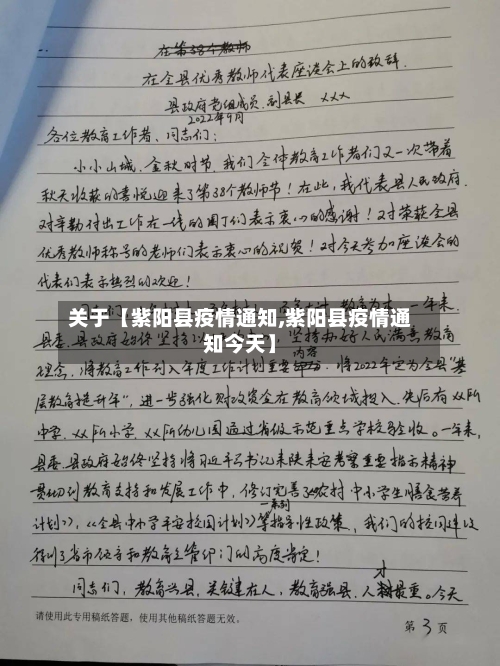 在第38个教师
在全县优秀教师代表座谈会上的致辞.
县政府党组成员.副县长 XXX
2022年9月
各位教育工作者、同志们:
小小山城,金秋时节,我们全体教育工作者们又一次带着
秋天收获的喜悦迎来了第38个教师节!在此,我代表县人民政府.
对辛勤付出工作在一线的园丁们表示衷心的感谢!对荣获全县
优秀教师称号的老师们表示衷心的祝贺!对今天参加座谈会的
代表们表示热烈的欢迎!
一年来.
关于【紫阳县疫情通知,紫阳县疫情通
知今天】
县委、县政府始终坚持 坚持办好人民满意教育
理念,将教育工作列入年度工作计划重要内容.将2022年定为全县"基
层教育提升年",进一步强化财政资金在教育领域投入.先后有XX所
中学.XX所小学.XX所幼儿园通过省级示范重点学校验收。一年来,
县委.县政府始终坚持将习近平总书记来陕来安考察重要指示精神
贯彻到教育支持和发展工作中,修订完善了《农村中小学生膳食营养
计划》,《全县中小学平安校园计划》等一系列指导性政策,我们的校园建设
得到了省市领导和教育主管部门的高度肯定!
同志们,教育兴县,关键在人,教育强县,人才最重。今天
请使用此专用稿纸答题,使用其他稿纸答题无效。
第 3 页